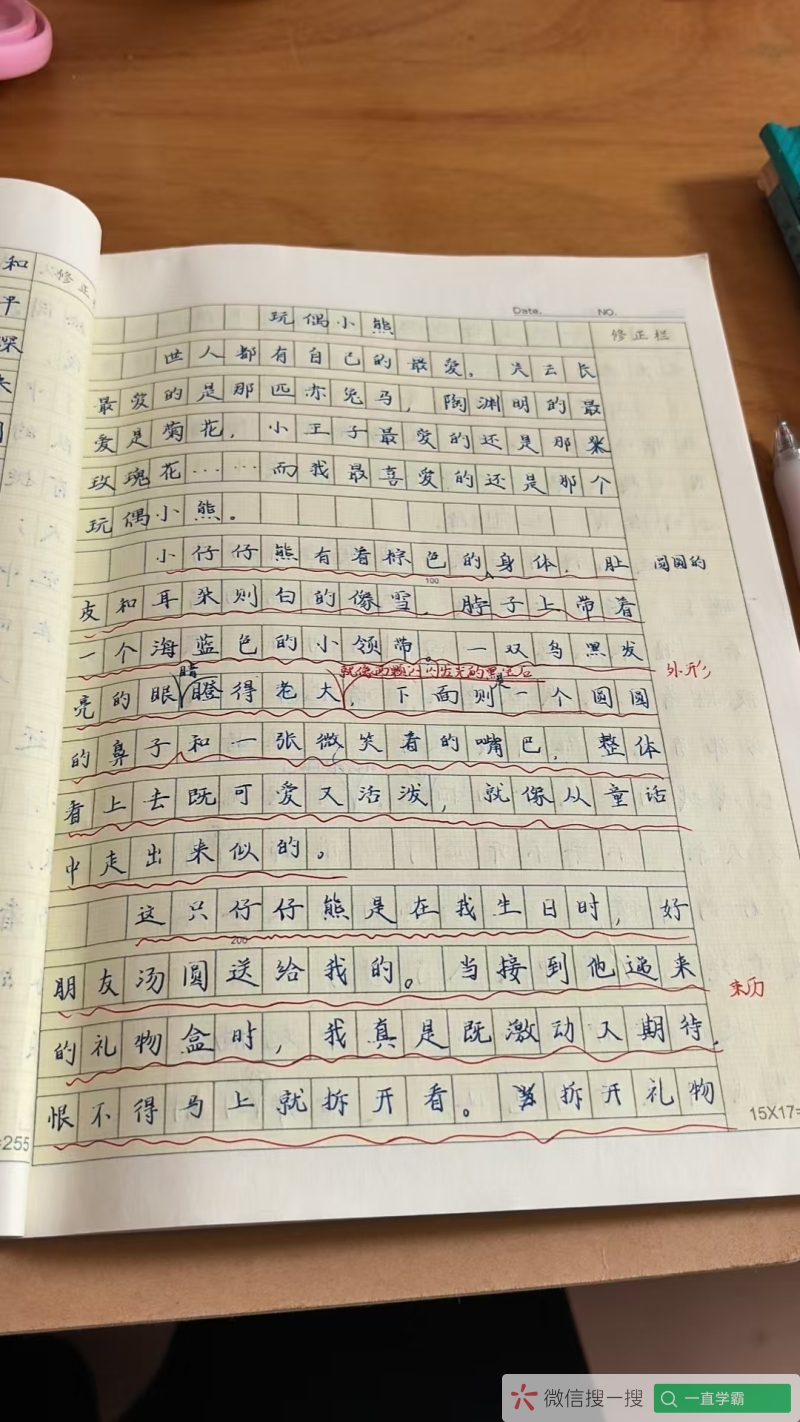 和
平
深
修正
Date.
NO.
玩偶小熊
修正栏
世人都有自己的最爱。关云长
最爱的是那匹赤兔马，陶渊明的最
爱是菊花，小王子最爱的还是那
玫瑰花……而我最喜爱的还是那个
玩偶小熊。
小仔仔熊有着棕色的身体，肚
圆圆的
100
皮和耳朵则白的像雪，脖子上带着
一个海蓝色的小领带。一双乌黑发
外形
睛
就像两颗闪闪发光的黑宝石
亮的眼瞪得老大，下面则一个圆圆
是
的鼻子和一张微笑着的嘴巴，整体
看上去既可爱又活泼，就像从童话
中走出来似的。
这只仔仔熊是在我生日时，好
200
朋友汤圆送给我的。当接到他递来
来历
的礼物盒时，我真是既激动又期待，
恨不得马上就拆开看。拆开礼物
15X17=
=255
微信搜一搜
一直学霸